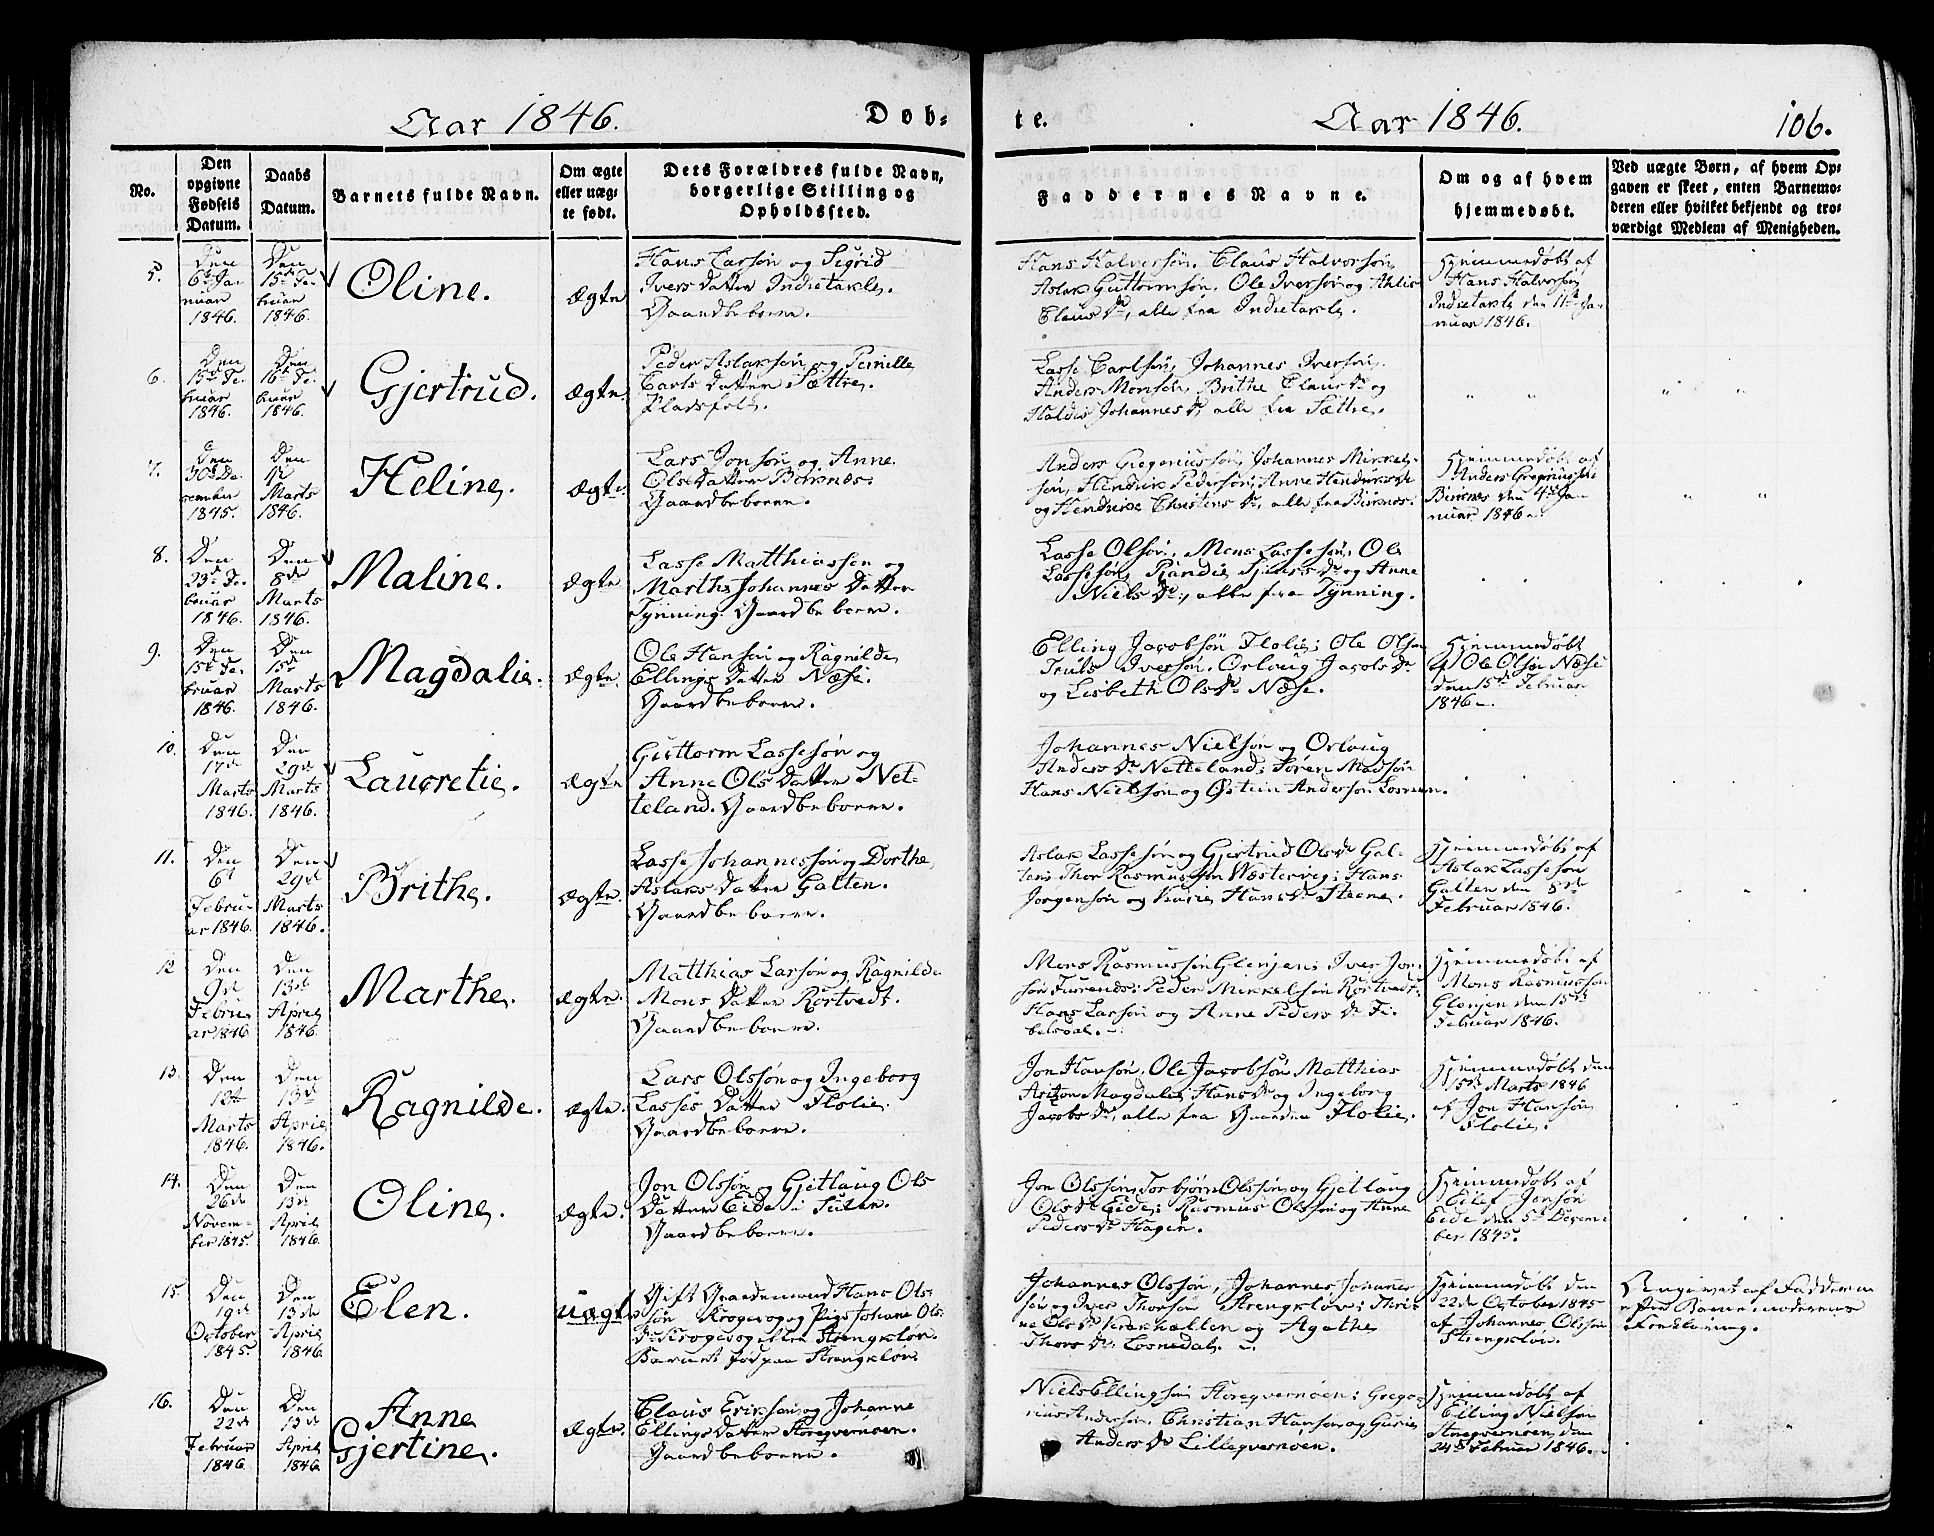 Aar 1846.
Døb-
te.
Aar 1846.
106.
No.
Den
opgivne
Fødsels
Datum.
Daabs
Datum.
Barnets fulde Navn.
Om ægte
eller uægt
te født.
Dets Forældres fulde Navn,
borgerlige Stilling og
Opholdssted.
Faddernes Navne.
Om og af hvem
hjemmedøbt.
Ved uægte Børn, af hvem Op-
gaven er skeet, enten Barnemo-
deren eller hvilket bekjendt og tro-
værdigt Medlem af Menigheden.
5.
Den
6te Ja-
nuar
1846.
Den
15de Fe-
bruar
1846.
Oline.
Ægte
Hans Larsøn og Sigrid
Ivers Datter Indretakle.
Gaardbeboere.
Hans Halversøn. Claus Halvorsøn,
Aslak Guttormsøn. Ole Iversøn og
Claus Dr, alle fra Indretakle.
Hjemmedøbt af
Hans Halversøn
Indretakle den 11te Ja-
nuar 1846.
6.
Den
15de Fe-
bruar
1846.
Den
16de Fe-
bruar
1846.
Gjertrud.
Ægte.
Peder Aslaksøn og Pernille
Carls Datter Sættre.
Pladsfolk.
Lasse Carlsøn, Johannes Iversøn.
Anders Monsen, Brithe Claus Dr og
Johannes Dr, alle fra Sættre.
7.
Den
30te De-
cember
1845.
Den
1te
Marts
1846.
Heline.
Ægte.
Lars Jonsøn og Anne
Ols Datter Birknes.
Gaardbeboere.
Anders Gregeriussøn, Johannes Mikkel-
søn, Hendrik Pedersøn, Anne Hendriks Dr
og Hendrike Christens Dr, alle fra Birknes.
Hjemmedøbt af
Anders Gregriussøn
Birknes den 4de Ja-
nuar 1846.
8.
Den
23de Fe-
bruar
1846.
Den
8de
Marts
1846.
Maline.
Ægte
Lasse Matthiassen og
Marthe Johannes Datter
Tynning. Gaardbeboere.
Lasse Olsøn, Mons Lassesøn, Ole
Lassesøn, Dr og Anne
Niels Dr, alle fra Tynning.
9.
Den
15de Fe-
bruar
1846.
Den
15de
Marts
1846.
Magdalie.
Ægte.
Ole Hansøn og Ragnilde
Ellings Datter Næse.
Gaardbeboere.
Elling Jacobsøn Flolie; Ole Olsøn
Truls Iversøn. Orloug Jacobs Dr
og Lisbeth Ols Dr Næse.
Hjemmedøbt
af Ole Olsøn Næse
den 15de Februar
1846.
10.
Den
17de
Marts
1846.
Den
29de
Marts
1846.
Laucretie.
Ægte
Guttorm Lassesøn og
Anne Ols Datter Net-
teland. Gaardbeboere.
Johannes Nielsøn og Orloug
Anders Dr Netteland; Søren Madsøn
Hans Nielsøn og Østein Andersøn Losneen.
11.
Den
6te
Febru-
ar 1846.
Den
29de
Marts
1846.
Brithe.
Ægte.
Lasse Johannessøn og Dorthe
Aslaks Datter Galten.
Gaardbeboere.
Aslak Lassesøn og Gjertrud Ols Dr Gal-
ten; Thor Rasmussøn Wæstervig; Hans
Jørgensøn og Karie Hans Dr Steene.
Hjemmedøbt af
Aslak Lassesøn
Galten den 8de
Februar 1846.
12
Den
9de
Febru-
ar 1846
Den
13de
April
1846.
Marthe.
Ægte.
Matthias Larsøn og Ragnilde
Mons Datter Rortvedt.
Gaardbeboere.
Mons Rasmussøn Glenjen; Iver Jon-
søn Furenes; Peder Mikkelsøn Rortvedt;
Hans Larsøn og Anne Peders Dr Fi-
belsdal.
Hjemmedøbt af
Mons Rasmussøn
Glenjen den 15de
Februar 1846.
13.
Den
12te
Marts
1846.
Den
13de
April
1846.
Ragnilde.
Ægte.
Lars Olssøn og Ingeborg
Lasses Datter Flolie.
Gaardbeboere.
Jon Hansøn. Ole Jacobsøn Matthias
Magdalie Hans Dr og Ingeborg
Jacobs Dr, alle fra Gaarden Flolie.
Hjemmedøbt den
15de Marts 1846
af Jon Hansøn
Flolie.
14.
Den
26de
Novem-
ber 1845.
Den
13de
April
1846.
Oline.
Ægte.
Jon Olssøn og Gjetlaug Ols
Datter Eide i Sulen.
Gaardbeboere.
Jon Olssøn, Torbjørn Olssøn og Gjetlaug
Ols Dr Eide; Rasmus Olssøn og Anne
Peders Dr Hagen.
Hjemmedøbt af
Eilef Jonsøn
Eide den 5te Decem-
ber 1845.
15.
Den
19de
October
1845
Den
13de
April
1846.
Elen.
Uægte
Gift Gaardemand Hans Ols-
søn Krogevog og Pige Johane Ols-
Dr Krogevog Strengkløv.
Barnet født paa Strengkløv
Johannes Olssøn, Johannes Johanes-
søn og Iver Thorsøn Strengkløv; Thri-
ne Ols Dr Krakhellen og Agathe
Thors Dr Losnedal.
Hjemmedøbt den
22de October 1845
af Johannes Olssøn
Strengkløv.
Angivet af Fadderne
efter Barnemoderens
Forklaring.
16.
Den
22de
Februar
1846
Den
13de
April
1846
Anne
Gjertine.
Ægte.
Claus Eriksøn og Johanne
Ellings Datter Storeqvernøen.
Gaardbeboere.
Niels Ellingsøn Storeqvernøen; Grego-
rius Andersøn, Christian Hansøn og Gurie
Anders Dr Lilleqvernøen.
Hjemmedøbt af
Elling Nielsøn
Storeqvernøen den
24de Februar 1846.